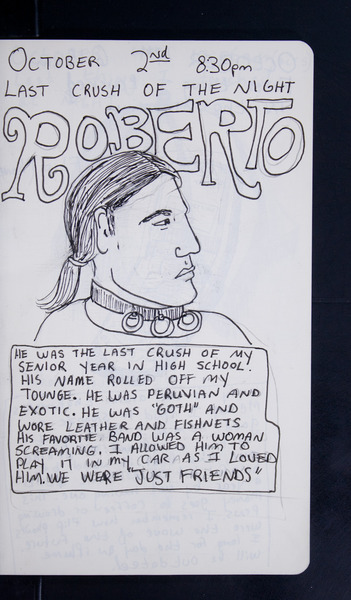 OCTOBER 2nd 8:30pm
LAST CRUSH OF THE NIGHT
ROBERTO
HE WAS THE LAST CRUSH OF MY
SENIOR YEAR IN HIGH SCHOOL.
HIS NAME ROLLED OFF MY
TOUNGE. HE WAS PERUVIAN AND
EXOTIC. HE WAS "GOTH" AND
WORE LEATHER AND FISHNETS
HIS FAVORITE BAND WAS A WOMAN
SCREAMING. I ALLOWED HIM TO
PLAY IT IN MY CAR AS I LOVED
HIM. WE WERE "JUST FRIENDS"